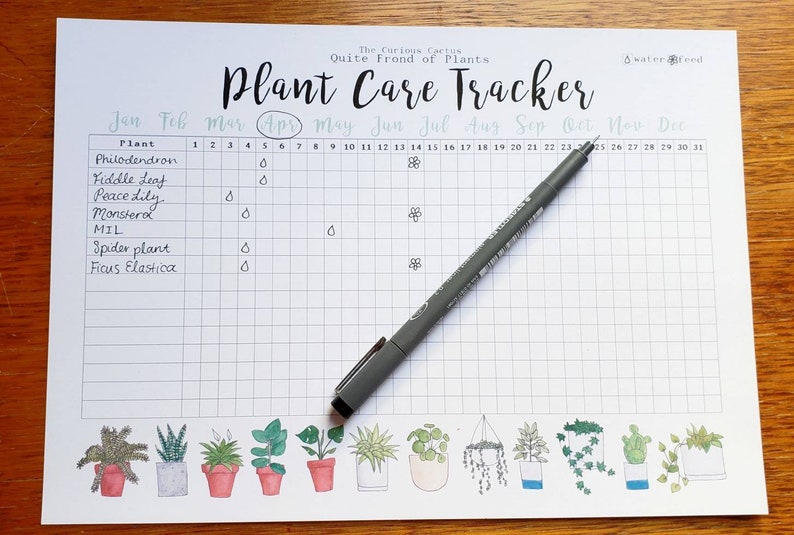 The Curious Cactus
Quite Frond of Plants
water feed
Plant Care Tracker
Jan Feb Mar Apr May Jun Jul Aug Sep Oct Nov Dec
Plant 1 2 3 4 5 6 7 8 9 10 11 12 13 14 15 16 17 18 19 20 21 22 23 25 26 27 28 29 30 31
Philodendron
Fiddle Leaf
Peace Lily
Monstera
MIL
Spider plant
Ficus Elastica